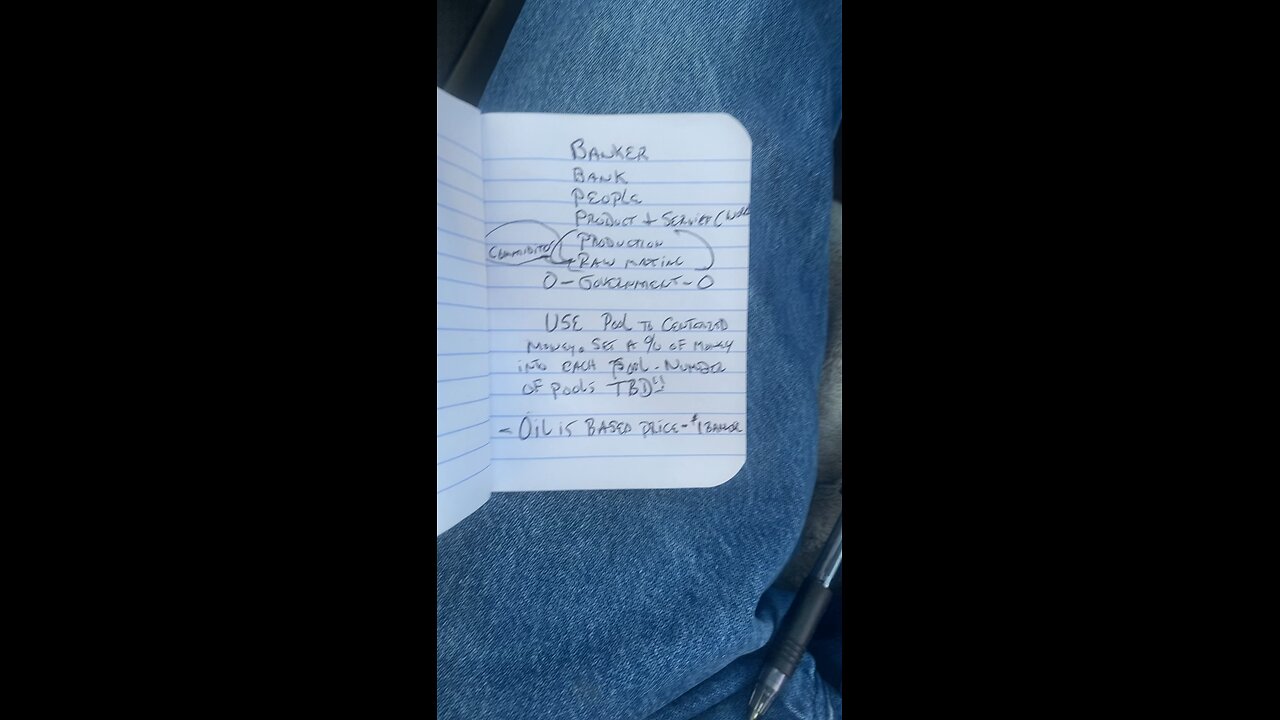 BANKER
BANK
PEOPLE
PRODUCT + SERVICE (
PRODUCTION
RAW
O - GOVERNMENT - O
USE POOL TO
MONEY. SET A % OF MONEY
INTO EACH POOL - NUMBER
OF POOLS TBD!!
- OIL IS BASED PRICE - $1